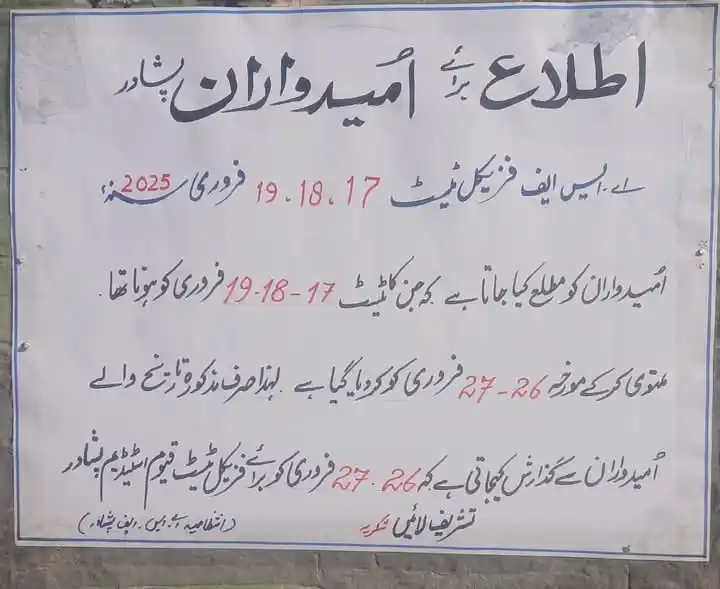 اطلاع برائے اُمیدواران پشاور
اے.ایس ایف فزیکل ٹیسٹ 17.18.19 فروری سنہ 2025ء
اُمیدواران کو مطلع کیا جاتا ہے کہ جن کا ٹیسٹ 17-18-19 فروری کو ہونا تھا.
ملتوی کر کے مورخہ 26-27 فروری کو کر دیا گیا ہے لہذا صرف مذکورہ تاریخ والے
اُمیدواران سے گذارش کیجاتی ہے کہ 26.27 فروری کو برائے فزیکل ٹیسٹ قیوم اسٹیڈیم پشاور
تشریف لائیں شکریہ (انتظامیہ اے.ایس.ایف پشاور)